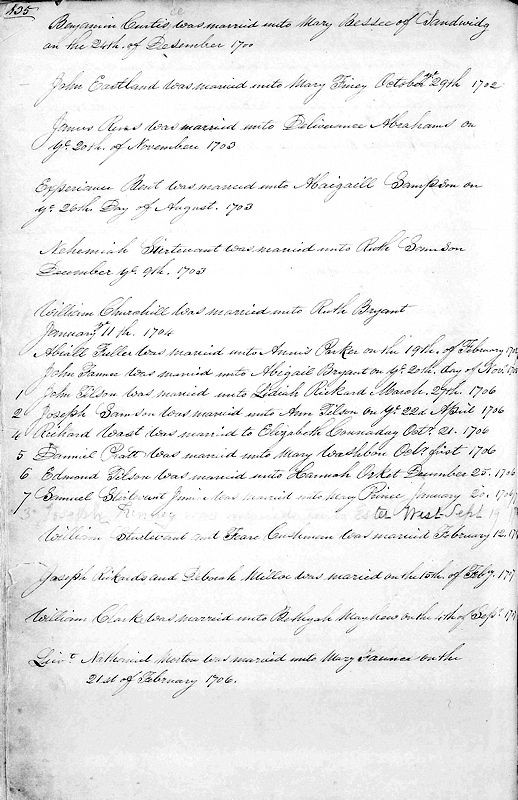 135
Benjamin Curtis was married unto Mary Bessee of Sandwidg
on the 24th. of Desember 1700
John Eastland was maried unto Mary Finey October ye 29th 1702
James was married unto Deliverance Abrahams on
ye 20th. of November 1703
Experiance Bent was maried unto Abaigaill Sampson on
ye 26th. Day of August. 1703
Nehemiah Sturtevant was maried unto Ruth Samson
December ye 9th. 1703
William Churchill was married unto Ruth Bryant
January 11th. 1704
Abiall Fuller was maried unto Annis on the 19th. of February
John Faunce was maried unto Abigail Bryant on ye 20th. day of Novr.
1 John Tilson was maried unto Lidiah Rickard March. 27th. 1706
2 Joseph Samson was maried unto Ann Tilson on ye 22d April 1706
4 Richard Wast was maried to Elizabeth Cannaday Octr. 21. 1706
5 Daniell Pratt was maried unto Mary Washbon Octr first 1706
6 Edmond Tilson was maried unto Hannah Orket December 25. 1706
7 Samuel Sturtevant Junr. Was married unto Mary Prince January 20.
3 Joseph was married unto Ester West Sept 19
William Sturtevant and Feare Cushman was married February 12.
Joseph Rickards and Deborah Miller was maried on the 15th. of Feby.
William Clarke was married unto Bethyah Mayhew on the 4th of Sepr.
Livt. Nathaniel Morton was married unto Mary Faunce on the
21st of February 1706.